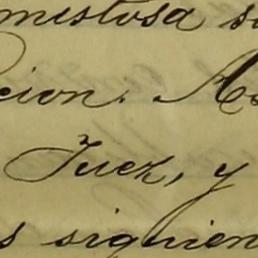 mistosa s
cion. A
Juez, y
s siguien